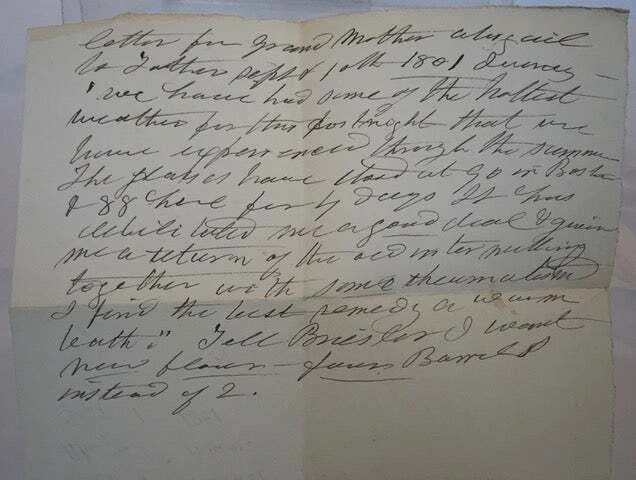 letter for Grand Mother Abigail
to Father Sept 10th 1801 Quincy –
"we have had some of the hottest
weather for this fortnight that we
have experienced through the summer
The glasses have stood at 90 in Boston
& 88 here for 4 days It has
debilitated me a good deal & given
me a return of the old
together with some rheumatism
I find the best remedy a warm
bath." Tell Briesler I want
new flour – four Barrels
instead of 2.